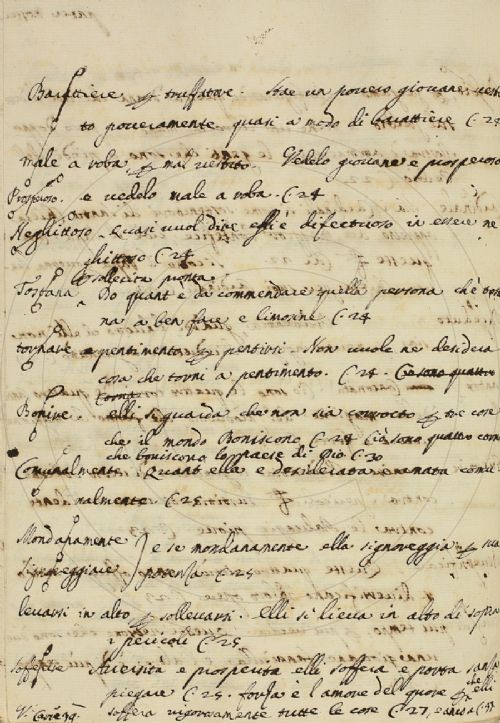 Barattiere truffatore. Stae un povero giovane vesti
to poveramente quasi a modo di barattiere C. 24
male a roba mal vestito. Vedelo giovane e prosperoso
Prosperoso. e vedelo male a roba. C. 24
Neghittoso. Quasi vuol dire egli è difectuoso in essere ne
ghittoso C. 24
sollecita pronta.
Tostana Do quant è da commendare quella persona ch'è tosta
na a ben fare e limosine C. 24
tornare a pentimento pentirsi. Non vuole ne desidera
cosa che torni a pentimento. C. 24. Ciò sono quattro
Bonire. elli si guarda che non sia corrocto tre cose
che il mondo Boniscono C. 28 Ciò sono quattro com
che boniscono lo paese di Dio C. 30
Comunalmente. Quant ella è desiderata e amata comu
nalmente. C. 25
Mondanamente
e se mondanamente ella signoreggia sua
Signoreggiare potenza C. 25
levarsi in alto sollevarsi. elli si lieva in alto di sopra
i pericoli C. 25
Sofferire Aversità e prosperità elli soffera e porta sanza
piegare C. 25. forza e l'amore del quore elli
soffera vigorosamente tutte le cose C. 27